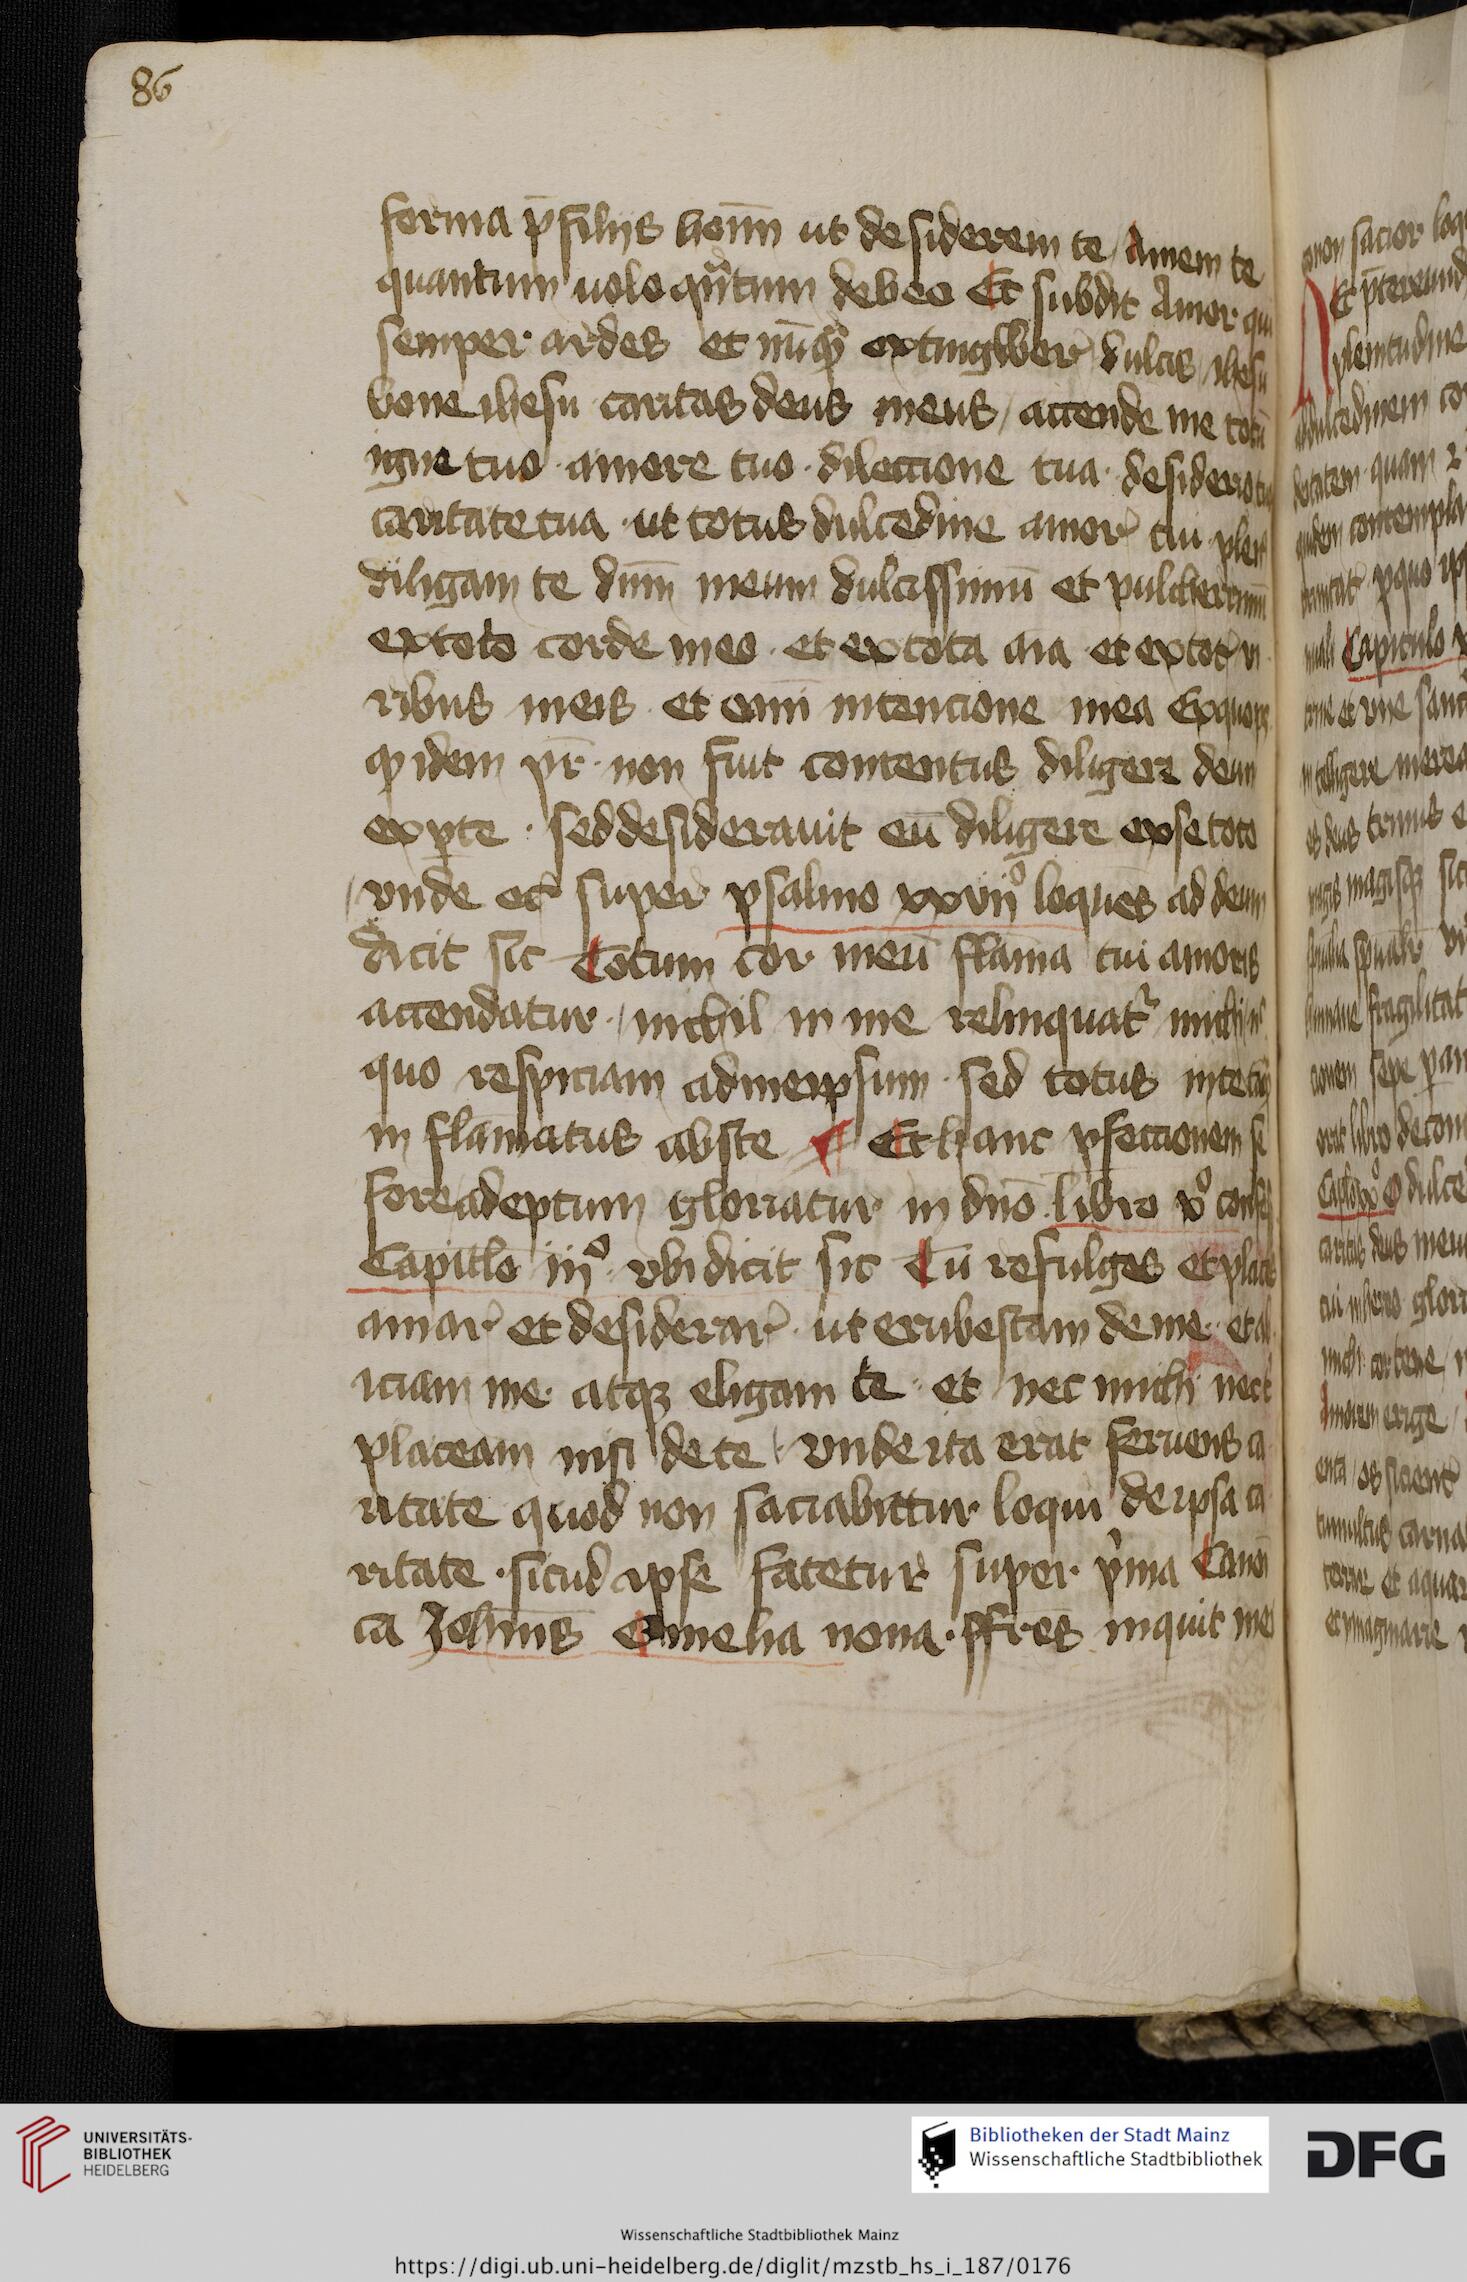 86
forma p̄ filijs homī ut desiderem te / Amem te
quantum uolo qu̅tum debeo Et subdit Amor qui
semper ardes et nu̅q̅ extingwer̄ dulcis / ihesu
bone ihesu caritas deus meus / accende me totū
igne tuo · amore tuo · dilectione tua · desiderio tuo
caritate tua · ut totus dulcedine amor̄ tui plen⁹
diligam te dn̄m meum dulcissimū et pulcherrimū
ex toto corde meo · et ex tota aīa · et ex tot̄ vi
ribus meis · et om̄i intencione mea Ex quo
q̨ idem pr̄ · non fuit contentus diligere deum
ex p̱te · sed desiderauit eū diligere ex se toto
/ vnde et̄ super psalmo xxviiº loquēs ad deum
dicit sic Totum cor meū flāma tui amoris
accendatur · / nichil in me relinquat̄ michi
quo respiciam ad meipsum · sed totus
in flāmatus abste ¶ Et hanc ꝑfectionem se
fore adeptum gloriatur in dn̄o · libro xº conf
Capitlo iiiº · vbi dicit sic Tū refulges et places
amar̄ et desiderar̄ · ut erubescam de me · et ab
iciam me · atqꝫ eligam te · et nec michi nec t
placeam nisi de te / vnde ita erat feruens ca
ritate quod non saciabittur loqui de ipsa ca
ritate · sicud ipse fatetur super pͥma Canoī
ca Joh̄nis Omelia nona · ffrēs inquit mei
non sacior loq
Et p̄tereund
plenitudine
dulcedinem
quam
contempla
Capitulo
et vne sanc
intelligere
es deus trinus
magis magisqꝫ
humane fragilitat
sepe
libro de com
Caplo xxº O dulce
caritas deus meus
michi cor tene
Amorem erige
tumultus carna
terre et aquar
et ymaginarie
UNIVERSITÄTS-
BIBLIOTHEK
HEIDELBERG
Bibliotheken der Stadt Mainz
Wissenschaftliche Stadtbibliothek
DFG
Wissenschaftliche Stadtbibliothek Mainz
https://digi.ub.uni-heidelberg.de/diglit/mzstb_hs_i_187/0176